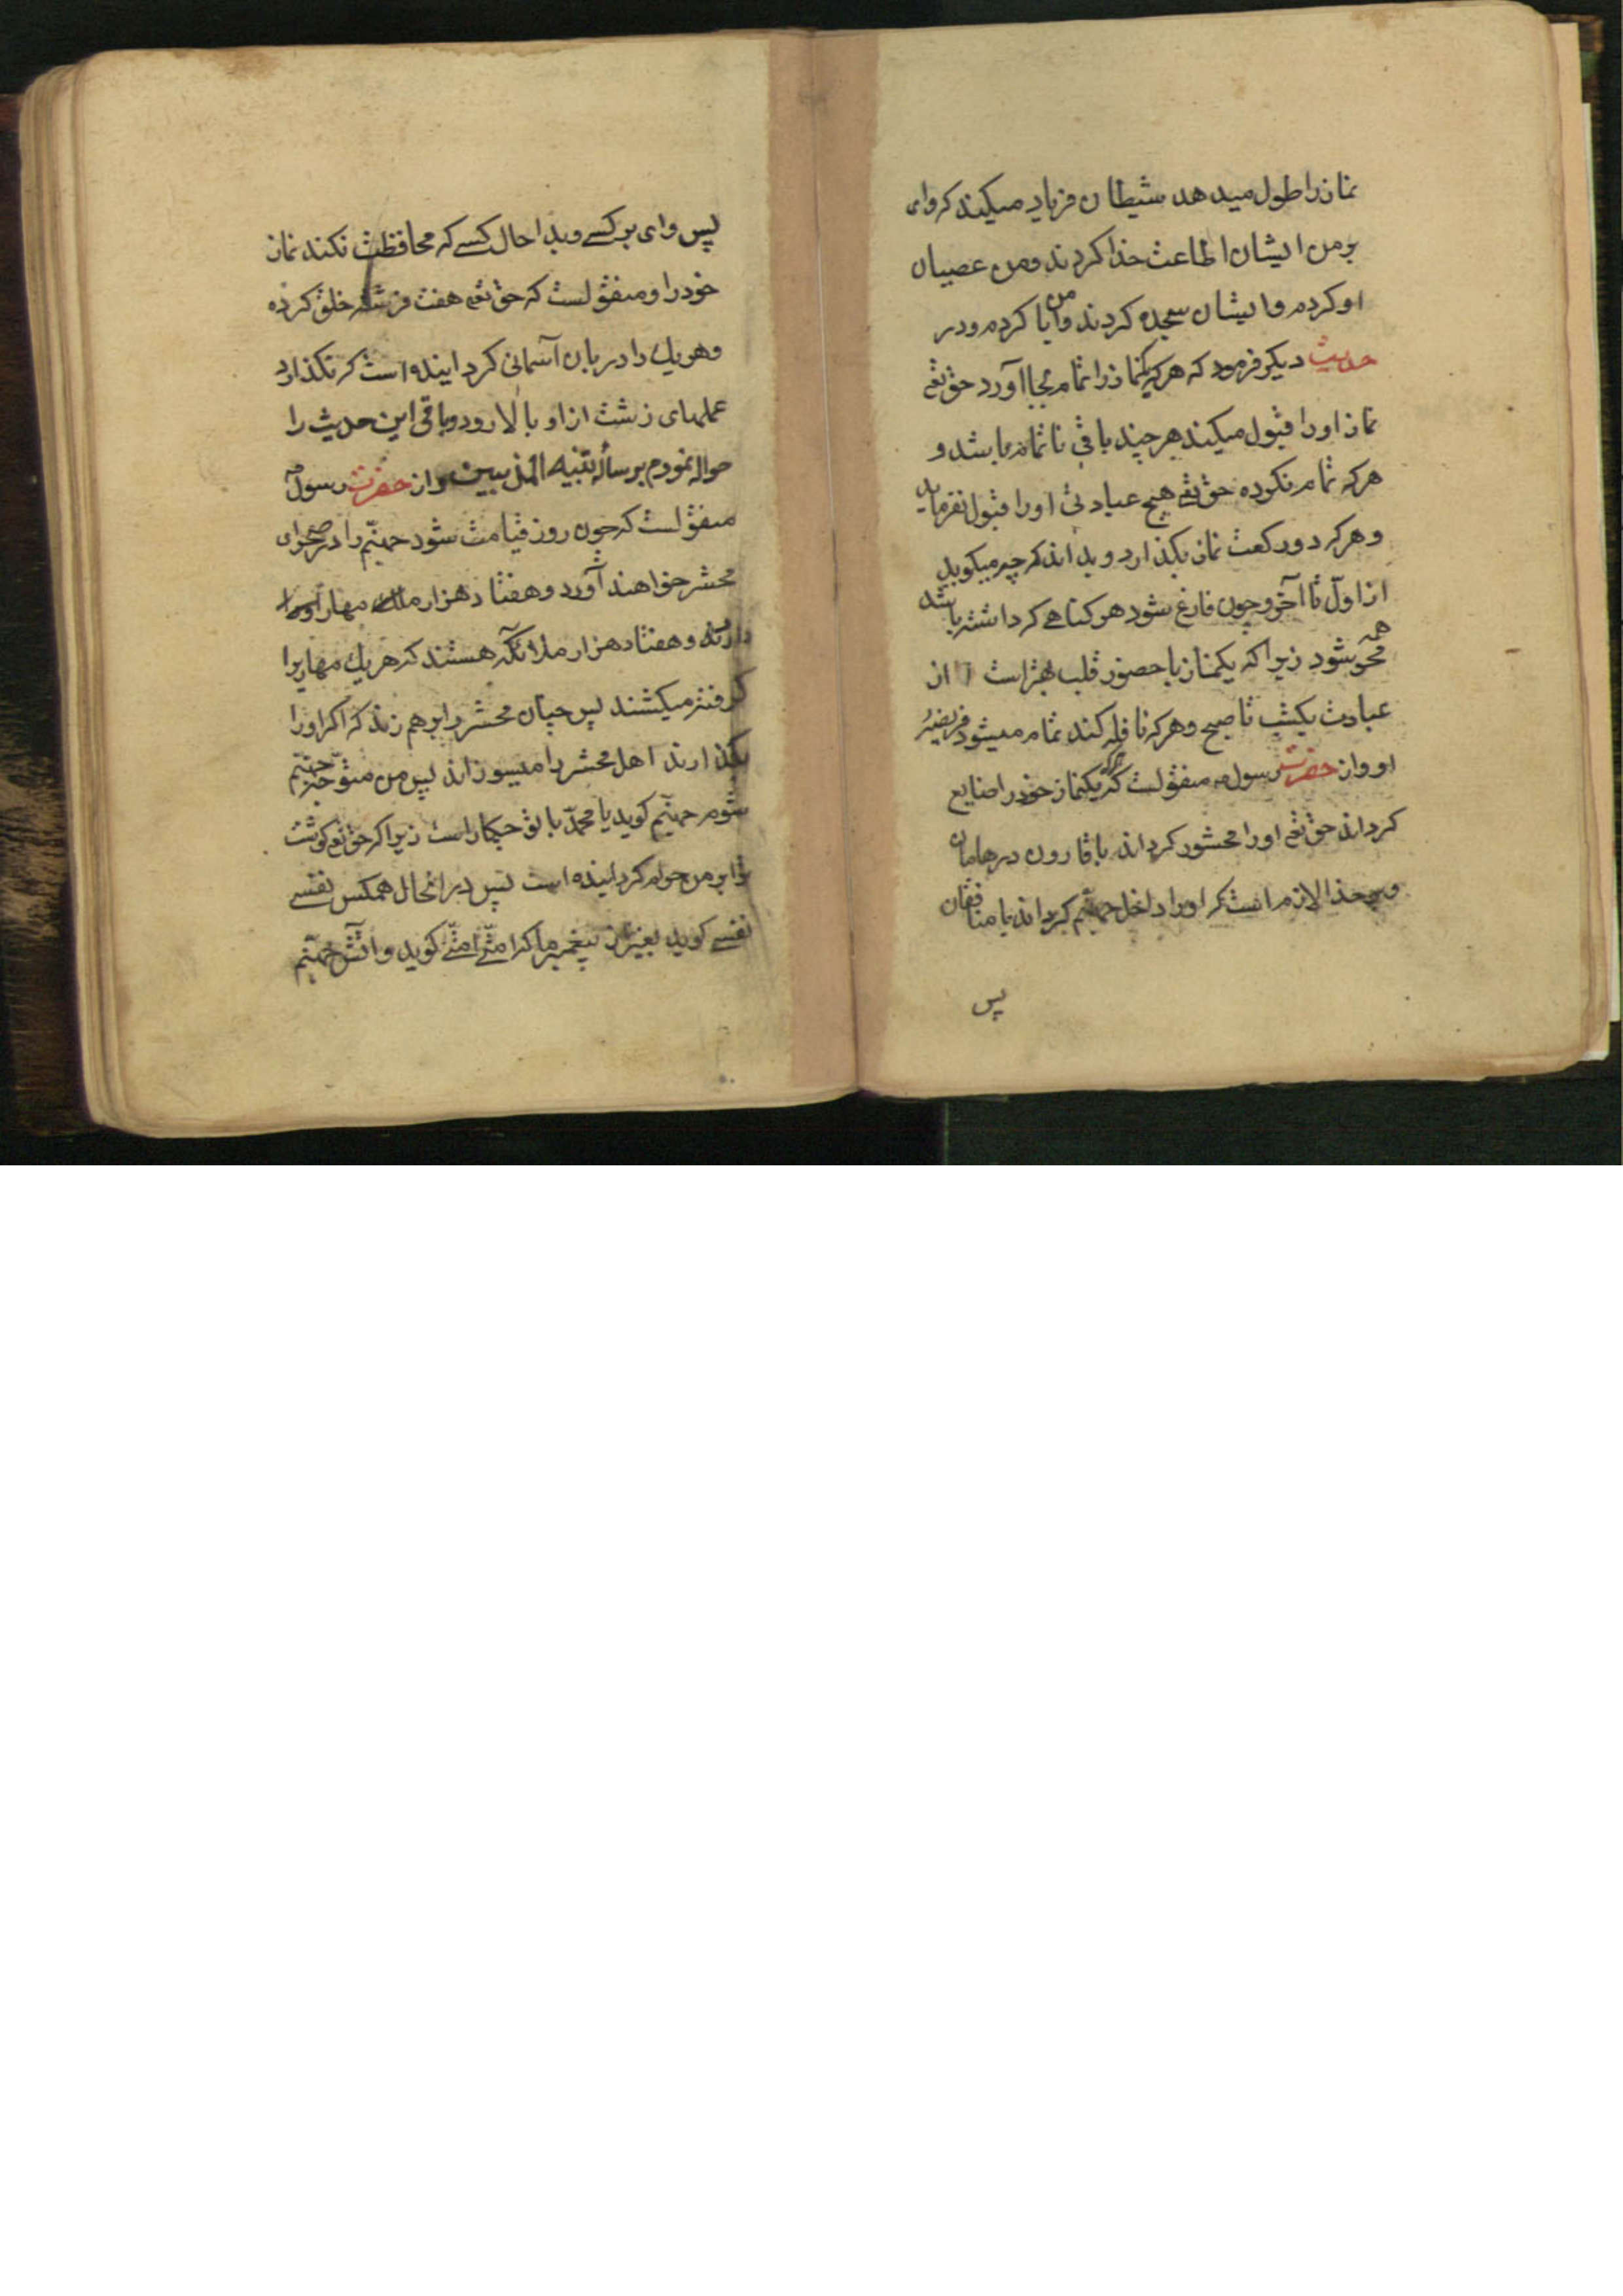 نماز را طول میدهد شیطان فریاد میکند که وای
بر من ایشان اطاعت خدا کردند و من عصیان
او کردم و ایشان سجده کردند و من ابا کردم و در
حدیث دیکر فرمود که هر که یکنماز را تمام بجا آورد حق تعه
نماز او را قبول میکند هر چند باقی ناتمام باشد و
هر که تمام نکرده حق تعه هیچ عبادتی او را قبول نفرماید
و هر که دو رکعت نماز بکذارد و بداند که چه میکوید
از اول تا آخر و چون فارغ شود هر کناهی که داشته باشد
همه محو شود زیرا که یکنماز با حضور قلب بهتر است از
عبادت یکشب تا صبح و هر که نافله کند تمام میشود فریضهٔ
او و از حضرت رسول ص منقولست که هر که یکنماز خود را ضایع
کرداند حق تعه او را محشور کرداند با قارون و هامان
و بر خدا لازم است که او را داخل جهنم کرداند با منافقان
پس
پس وای بر کسی و بدا حال کسی که محافظت نکند نماز
خود را و منقولست که حق تعه هفت فرشته خلق کرده
و هر یک را دربان آسمانی کردانیده است که نکذارد
عملهای زشت از او بالا رود و باقی این حدیث را
حواله نمودم برسالهٔ تنبیه المذنبین و از حضرت رسول ص
منقولست که چون روز قیامت شود جهنم را در صحرای
محشر خواهند آورد و هفتاد هزار ملک مهار او را
دارند و هفتاد هزار ملائکه هستند که هر یک مهاریرا
کرفته میکشند پس چنان محشر را بر هم زند که اکر او را
بکذارند اهل محشر را میسوزاند پس من متوجه جهنم
شوم جهنم کوید یا محمد با تو چکار است زیرا که حق تعه کوشت
ترا بر من حرام کردانیده است پس در انحال همکس نفسی
نفسی کوید بغیر از پیغمبر ما که امتی امتی کوید و آتش جهنم